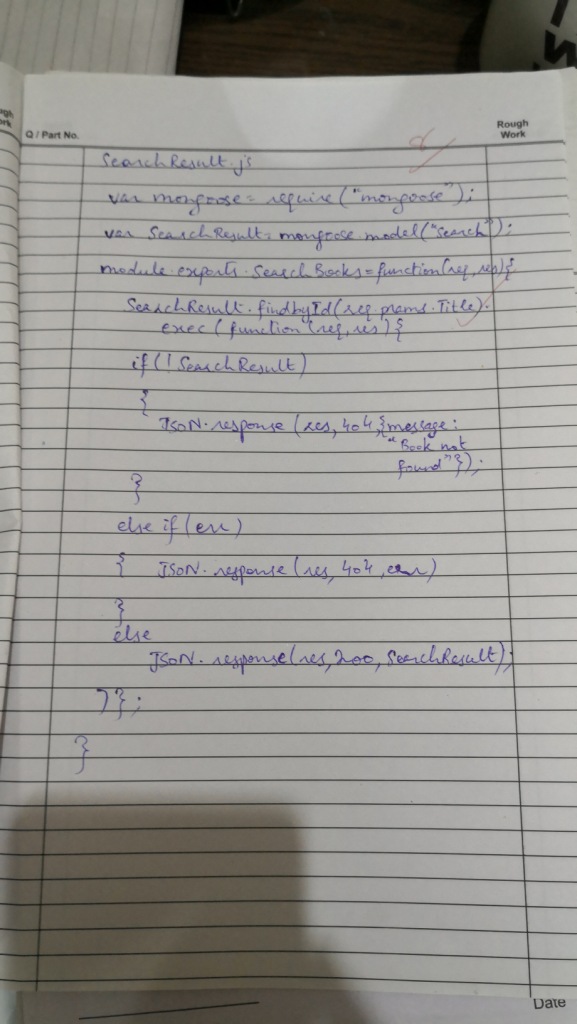 Rough
Work
Q / Part No.
SearchResult.js
var mongoose = require("mongoose");
var SearchResult = mongoose.model("Search");
module.exports.SearchBooks = function(req, res){
SearchResult.findbyId(req.prams.Title).
exec(function(req, res){
if(!SearchResult)
{
JSON.response(res, 404, {message:
"Book not
found"});
}
else if(err)
{ JSON.response(res, 404, err)
}
else
JSON.response(res, 200, SearchResult);
)};
}
Date